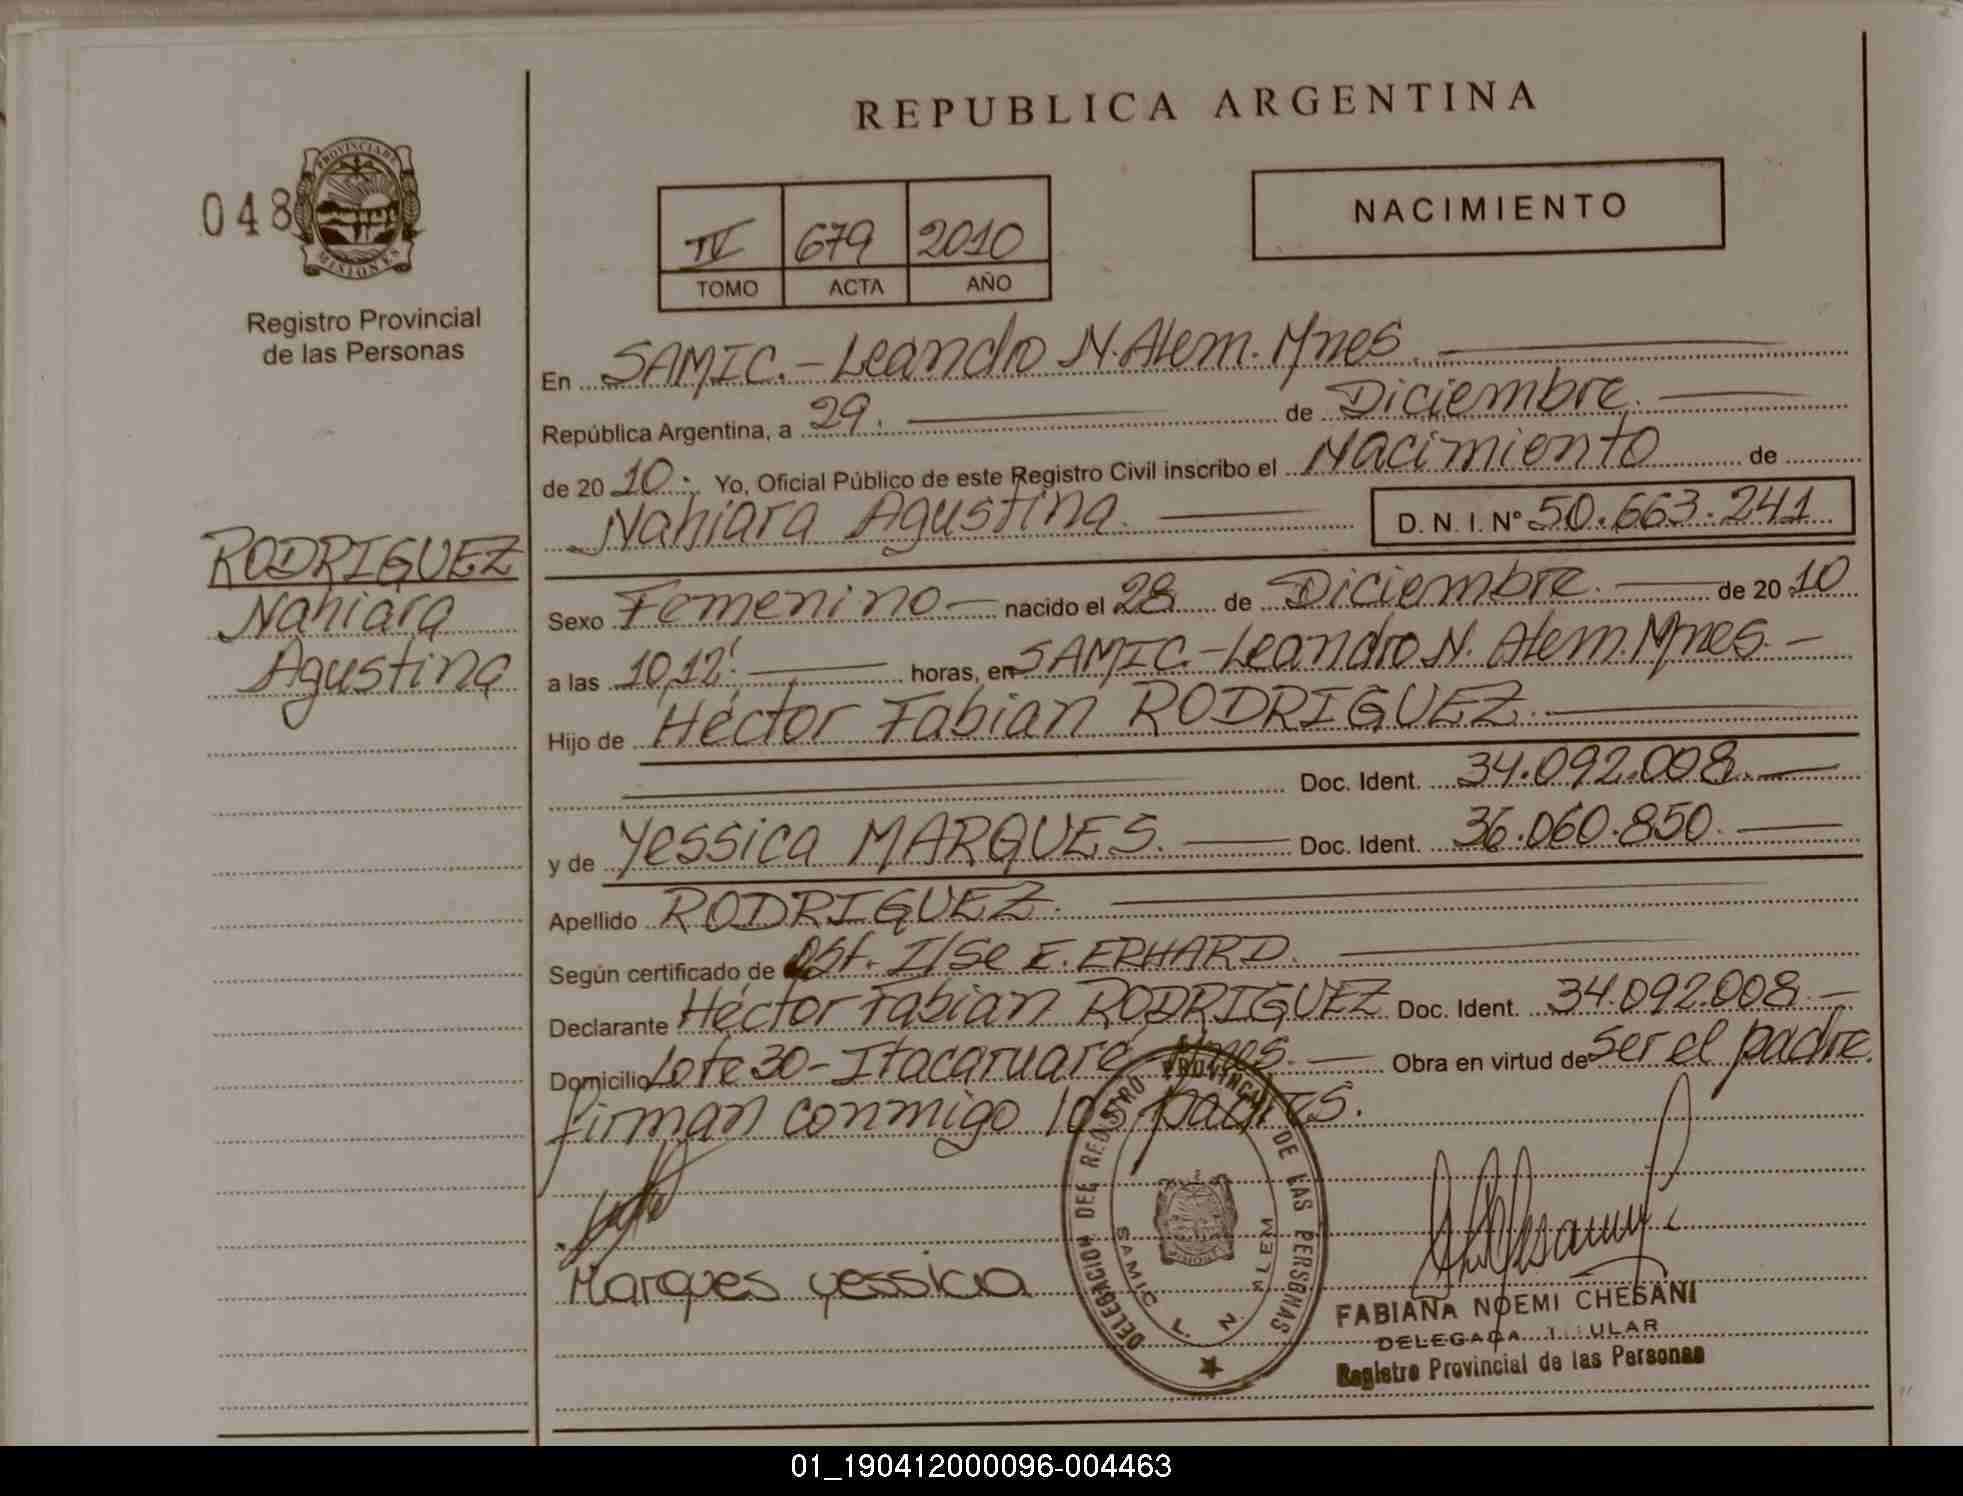 REPUBLICA ARGENTINA
048
PROVINCIA DE
MISIONES
Registro Provincial
de las Personas
IV 679 2010
TOMO ACTA AÑO
NACIMIENTO
En SAMIC.-Leandro N. Alem. Mnes.
República Argentina, a 29. de Diciembre.
de 20 10. Yo, Oficial Público de este Registro Civil inscribo el Nacimiento de
Nahiara Agustina. D. N. I. Nº 50.663.241
RODRIGUEZ
Nahiara
Agustina
Sexo Femenino nacido el 28 de Diciembre. de 20 10
a las 10,12'. horas, en SAMIC.-Leandro N. Alem. Mnes.-
Hijo de Héctor Fabian RODRIGUEZ.
Doc. Ident. 34.092.008.
y de Yessica MARQUES. Doc. Ident. 36.060.850.
Apellido RODRIGUEZ.
Según certificado de Obst. Ilse E. ERHARD.
Declarante Héctor Fabian RODRIGUEZ Doc. Ident. 34.092.008.-
Domicilio Lote 30-Itacaruaré Mnes. Obra en virtud de ser el padre.
firman conmigo los padres.
Marques yessica
DELEGACION DEL REGISTRO PROVINCIAL DE LAS PERSONAS
SAMIC L. N. ALEM
FABIANA NOEMI CHESANI
DELEGADA TITULAR
Registro Provincial de las Personas
01_190412000096-004463